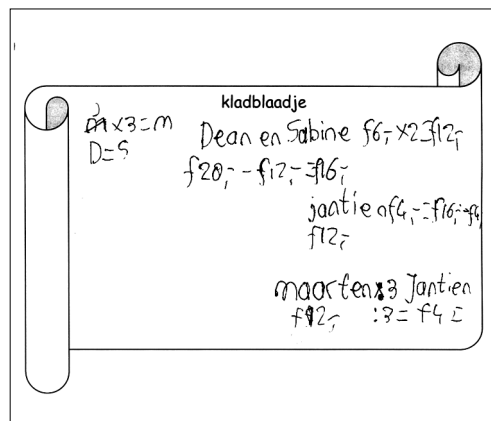 kladblaadje
j x3=m
D=S
Dean en Sabine f6,- x2=f12,-
f28,- - f12,- =f16,-
jantie f4,-=f16,-f4,
f12,-
maarten:3 Jantien
f12,- :3= f4 =